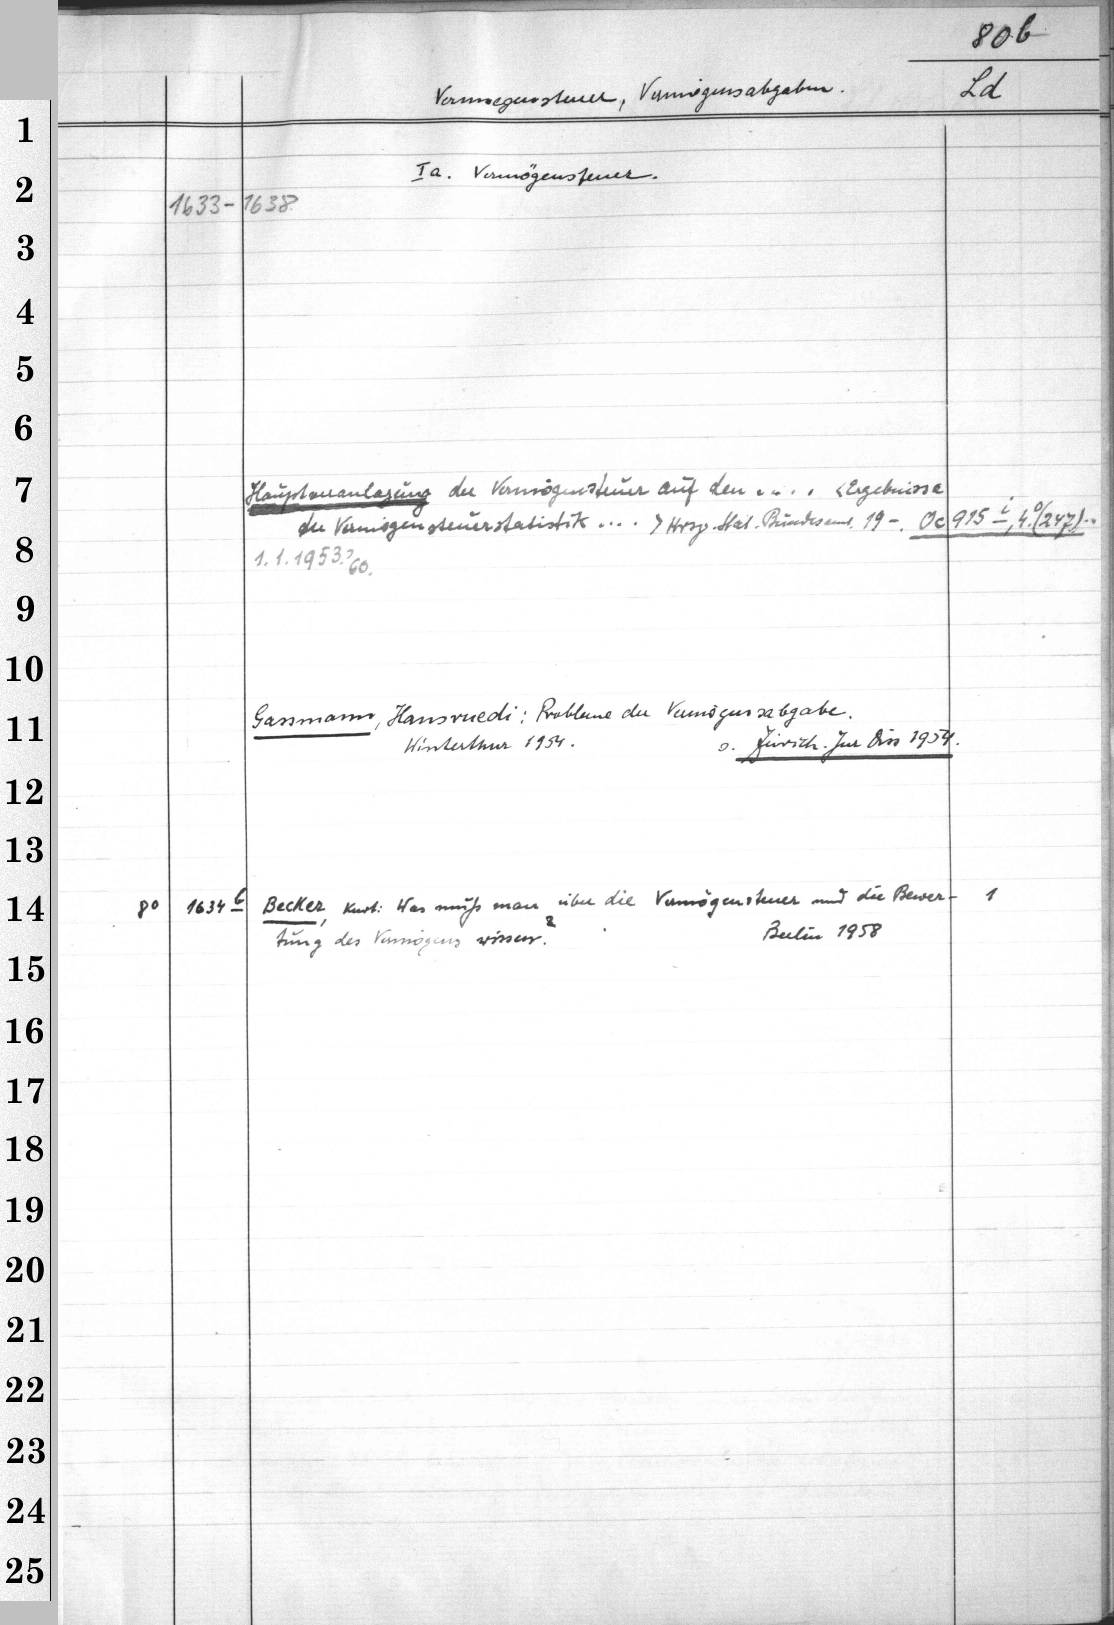 80b
Vermoegensteuer, Vermögensabgaben. Ld
1
Ia. Vermögensteuer.
2
1633 - 1638
3
4
5
6
7 Hauptveranlagung der Vermögensteuer auf den .... <Ergebnisse
der Vermögensteuerstatistik ....> Hrsg. Stat. Bundesamt. 19 -. Oc 915 i, 4° (247)..
8 1.1.1953. 60.
9
10
11 Gassmann, Hansruedi: Probleme der Vermögensabgabe.
Winterthur 1954. s. Zürich. Jur Diss 1954.
12
13
14 8° 1634 b Becker, Kurt: Was muß man über die Vermögensteuer und die Bewer- 1
tung des Vermögens wissen? Berlin 1958
15
16
17
18
19
20
21
22
23
24
25